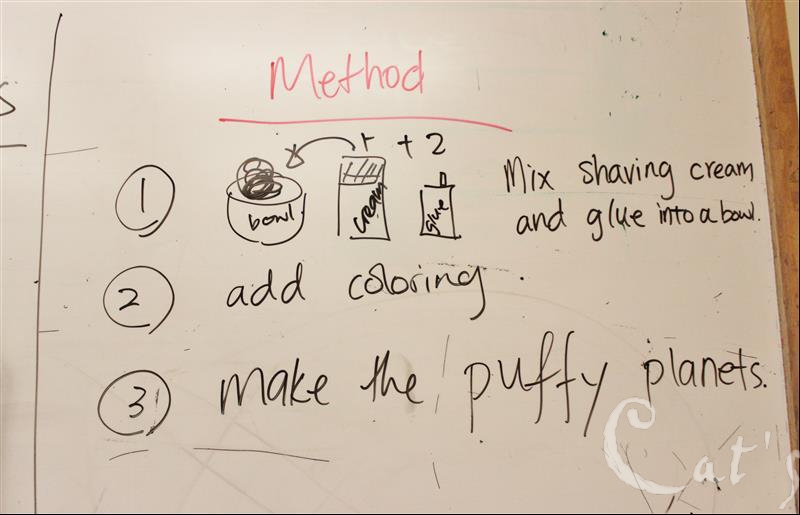 Method
+ 2
1 bowl cream glue Mix shaving cream
and glue into a bowl.
2 add coloring.
3 make the puffy planets.
Cat's